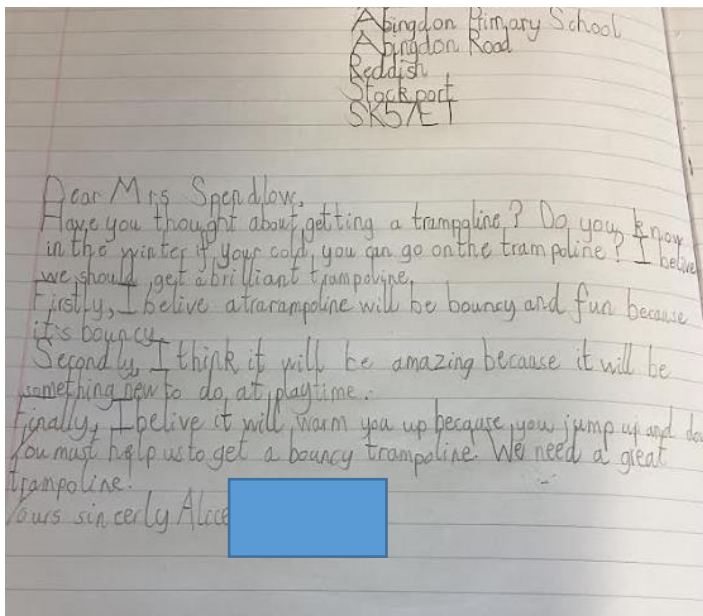 Abingdon Primary School
Abingdon Road
Reddish
Stockport
SK5 7ET
Dear Mrs Spendlow,
Have you thought about getting a trampoline? Do you know
in the winter if your cold, you can go on the trampoline? I belive
we should get a brilliant trampoline.
Firstly, I belive a trarampoline will be bouncy and fun because
it's bouncy.
Secondly, I think it will be amazing because it will be
something new to do at playtime.
Finally, I belive it will warm you up because you jump up and
You must help us to get a bouncy trampoline. We need a great
trampoline.
Yours sincerly Alice